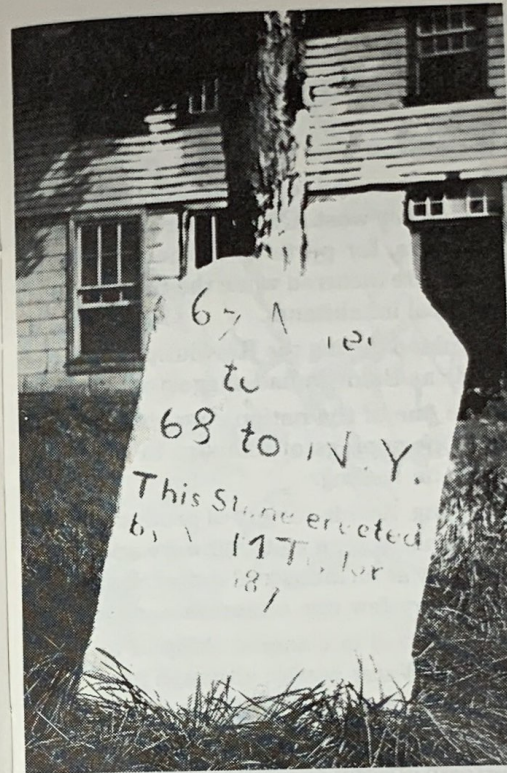 67
to
68 to N.Y.
This Stone erected
by
187